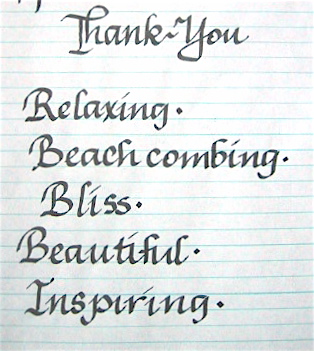 Thank~You
Relaxing.
Beach combing.
Bliss.
Beautiful.
Inspiring.